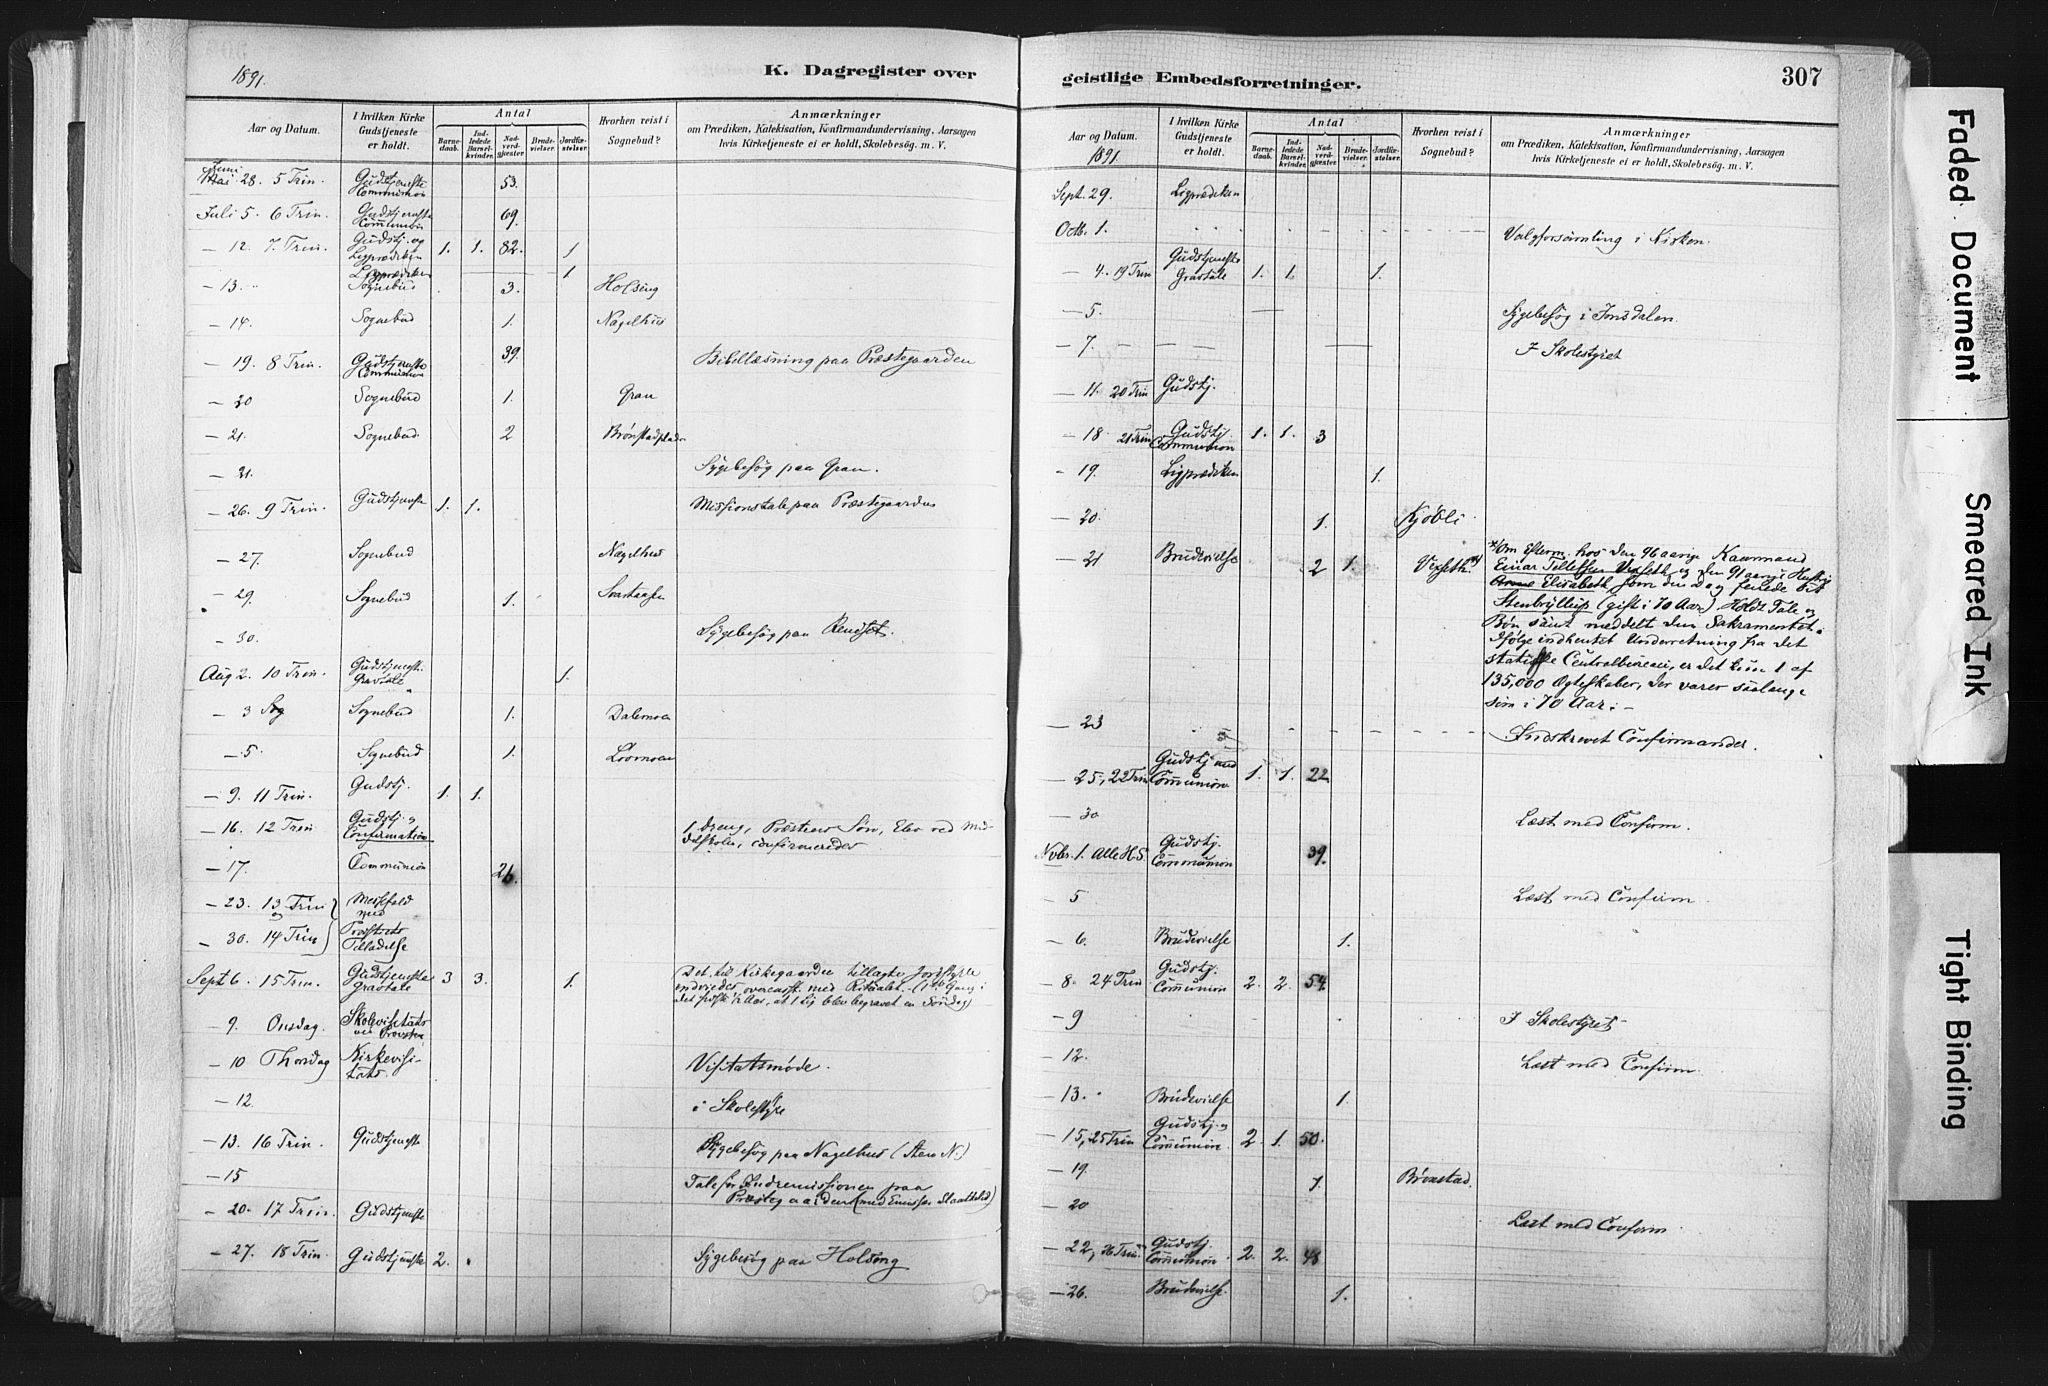 1891.
K. Dagregister over
Aar og Datum.
I hvilken Kirke Gudstjeneste er holdt.
Antal
Barnedaab.
Indledede Barselkvinder.
Nadverdgjester
Brudevielser.
Jordfæstelser.
Hvorhen reist i Sognebud?
Anmærkninger
om Prædiken, Katekisation, Konfirmandundervisning, Aarsagen
hvis Kirketjeneste ei er holdt, Skolebesøg. m. V.
Juni 28. 5 Trin. Gudstjeneste Communion 53.
Juli 5. 6 Trin. Gudstjeneste Communion 69.
— 12. 7. Trin. Gudstj. og Ligprædiken 1. 1. 82. 1
Ligprædiken 1
— 13. Sognebud 3. Holsing
— 14. Sognebud 1. Nagelhus
— 19. 8 Trin. Gudstjeneste Communion 39. Bibellæsning paa Præstegaarden
— 20 Sognebud 1. Gran
— 21. Sognebud. 2 Brønstadplads
— 21. Sygebesøg paa Gran.
— 26. 9 Trin. Gudstjeneste 1. 1. Missionstale paa Præstegaarden
— 27. Sognebud Nagelhus
— 29. Sognebud 1. Svartaasen
— 30. Sygebesøg paa Rendset.
Aug 2. 10 Trin. Gudstjenest. Gravtale 1.
— 3 Sognebud 1. Dalemoen
— 5. Sognebud 1.
— 9. 11 Trin. Gudstj. 1. 1.
— 16. 12 Trin Gudstj. og Confirmation 1 dreng, Præstens Søn, Elev ved Middelskolen, confirmeredes
— 17. Communion 26.
— 23. 13 Trin Messefald med
— 30. 14 Trin Tilladelse
Sept 6. 15 Trin. Gudstjeneste Gravtale 3 3. 1. Det til Kirkegaarden tillagte Jordstykke
indviedes overenst. med Ritualet. (1ste Gang i
det sidste ½ Aar, at 1 Lig blev begravet en Søndag)
— 9. Onsdag. Skolevisitats ved Provsten
— 10 Thorsdag Kirkevisitats. Visitatsmøde.
— 12. i Skolestyre
— 13. 16 Trin. Gudstjeneste Sygebesøg paa Nagelhus (Sten N.)
— 15 Tale for Indremissionen paa
Præstegaarden (med Emissær
— 20. 17 Trin. Gudstjeneste
— 27. 18 Trin Gudstjeneste 2. Sygebesøg paa Holsing
geistlige Embedsforretninger.
307
Aar og Datum.
1891.
I hvilken Kirke Gudstjeneste er holdt.
Antal
Barnedaab.
Indledede Barselkvinder.
Nadverdgjester
Brudevielser.
Jordfæstelser.
Hvorhen reist i Sognebud?
Anmærkninger
om Prædiken, Katekisation, Konfirmandundervisning, Aarsagen
hvis Kirketjeneste ei er holdt, Skolebesøg. m. V.
Sept. 29. Ligprædiken
Octb. 1. Valgforsamling i Kirken.
— 4. 19 Trin Gudstjeneste Gravtale 1. 1. 1.
— 5. Sygebesøg i Jonsdalen.
— 7. I Skolestyret
— 11. 20 Trin Gudstj.
— 18 21 Trin Gudstj. Communion 1. 1. 3
— 19. Ligprædiken 1.
— 20. 1. Kjøbli
— 21 Brudevielse 2 1. Vixseth. *)
*) Om Efterm. hos den 96 aarige Kaarmand
Einar Tellefsen Vixseth og den 91 aarige Hustru
Elisabeth, som den Dag feirede sit
Stenbryllup (gift i 70 Aar) Holdt Tale og
Bøn samt meddelt dem Sakramentet.
Ifølge indhentet Underretning fra det
statistiske Centralbureau, er det kun 1 af
135,000 Ægteskaber, der varer saalænge
som i 70 Aar. —
— 23 Indskrevet Confirmander.
— 25, 22 Trin Gudstj med Communion 1. 1. 22
— 30 Læst med Confirm.
Novbr. 1. Alle H. D. Gudstj. Communion 39.
— 5 Læst med Confirm.
— 6. Brudevielse 1.
— 8. 24 Trin Gudstj. Communion 2. 2. 54.
— 9 I Skolestyret
— 12. Læst med Confirm.
— 13. Brudevielse 1.
— 15, 25 Trin Gudstj. og Communion 2. 1. 50.
— 19. 1. Brønstad.
— 20 Læst med Confirm
— 22, 26 Trin. Gudstj. Communion 2. 2. 48
— 26. Brudevielse. 1.
Faded Document
Smeared Ink
Tight Binding